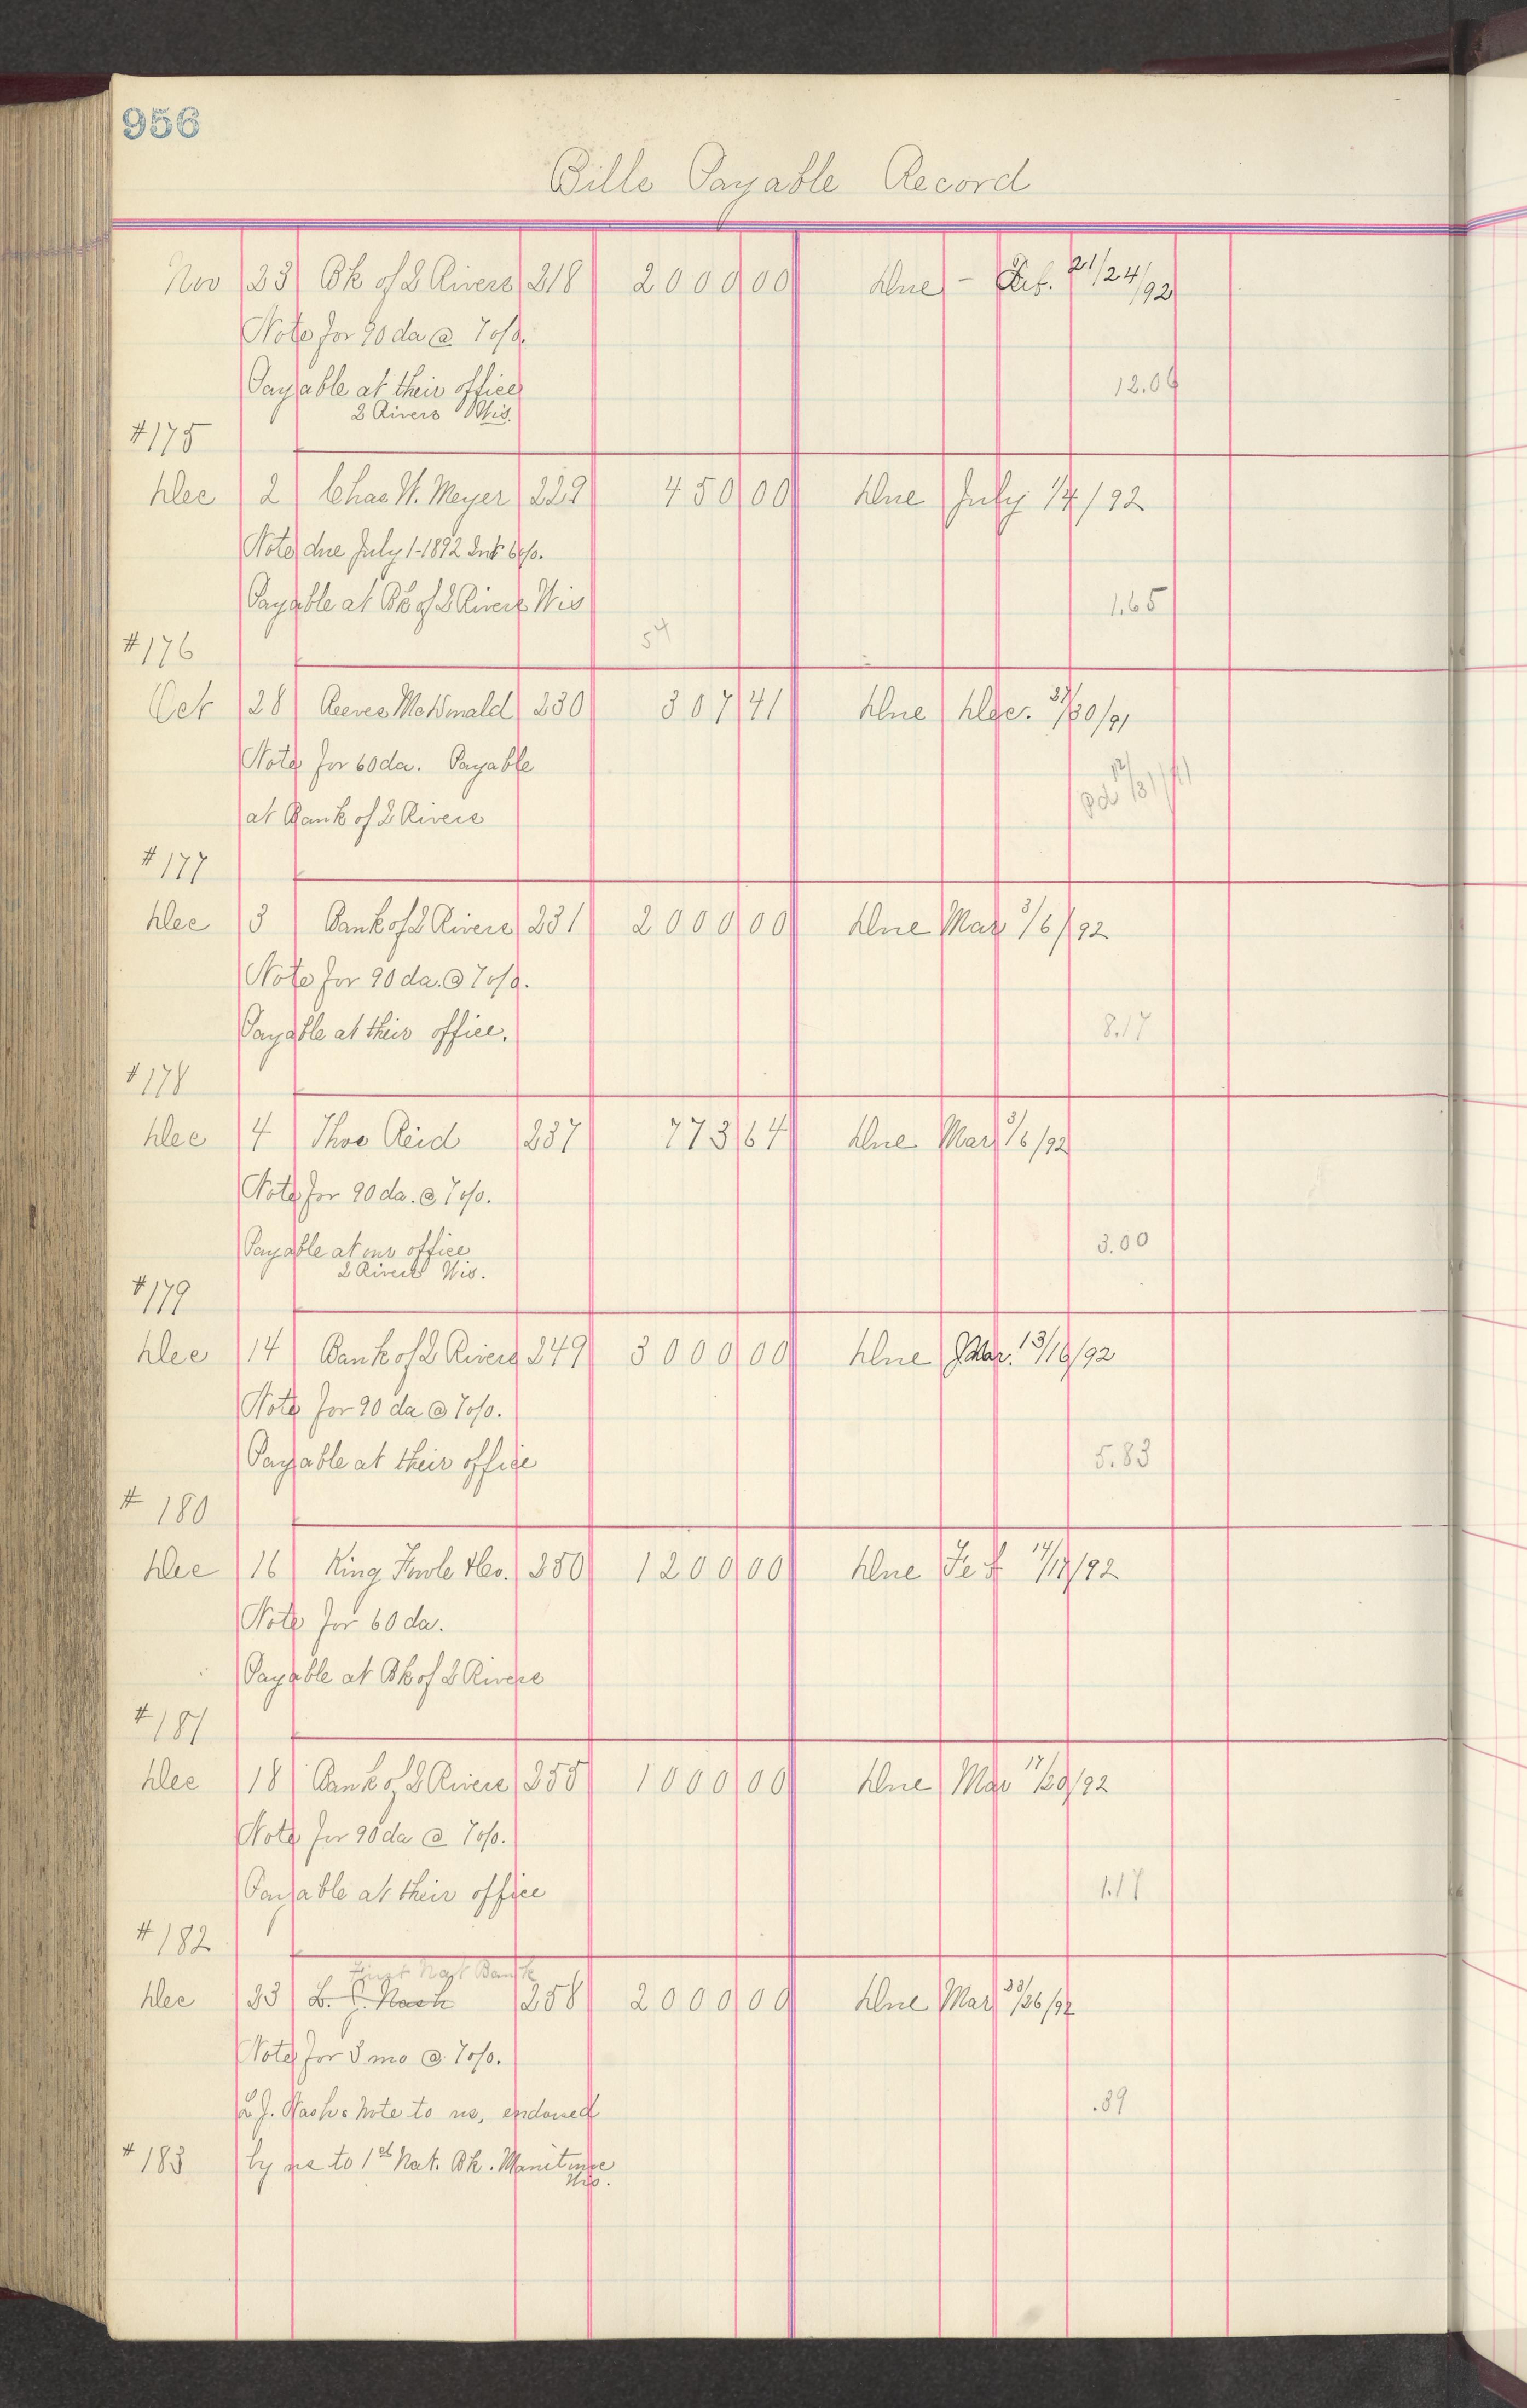 956
Bills Payable Record
Nov 23 Bk of 2 Rivers 218 2000 00 Due - Feb. 21/24/92
Note for 90 da @ 7%.
Payable at their office 12.06
2 Rivers Wis.
#175
Dec 2 Chas W. Meyer 229 450 00 Due July 1/4/92
Note due July 1-1892 Int 6%.
Payable at Bk of 2 Rivers Wis 1.65
54
#176
Oct 28 Reeves McDonald 230 307 41 Due Dec. 27/30/91
Note for 60 da. Payable
Pd 12/31/91
at Bank of 2 Rivers
#177
Dec 3 Bank of 2 Rivers 231 2000 00 Due Mar 3/6/92
Note for 90 da. @ 7%.
Payable at their office. 8.17
#178
Dec 4 Thos Reid 237 773 64 Due Mar 3/6/92
Note for 90 da. @ 7%.
Payable at our office 3.00
2 Rivers Wis.
#179
Dec 14 Bank of 2 Rivers 249 3000 00 Due Mar. 13/16/92
Note for 90 da @ 7%.
Payable at their office 5.83
# 180
Dec 16 King Fowle & Co. 250 1200 00 Due Feb 14/17/92
Note for 60 da.
Payable at Bk of 2 Rivers
#181
Dec 18 Bank of 2 Rivers 255 1000 00 Due Mar 17/20/92
Note for 90 da @ 7%.
Payable at their office 1.17
#182
First Natl Bank
Dec 23 L. J. Nash 258 2000 00 Due Mar 23/26/92
Note for 3 mo @ 7%.
L J. Nash's Note to us, endorsed .39
#183 by us to 1st Nat. Bk. Manitowoc
Wis.